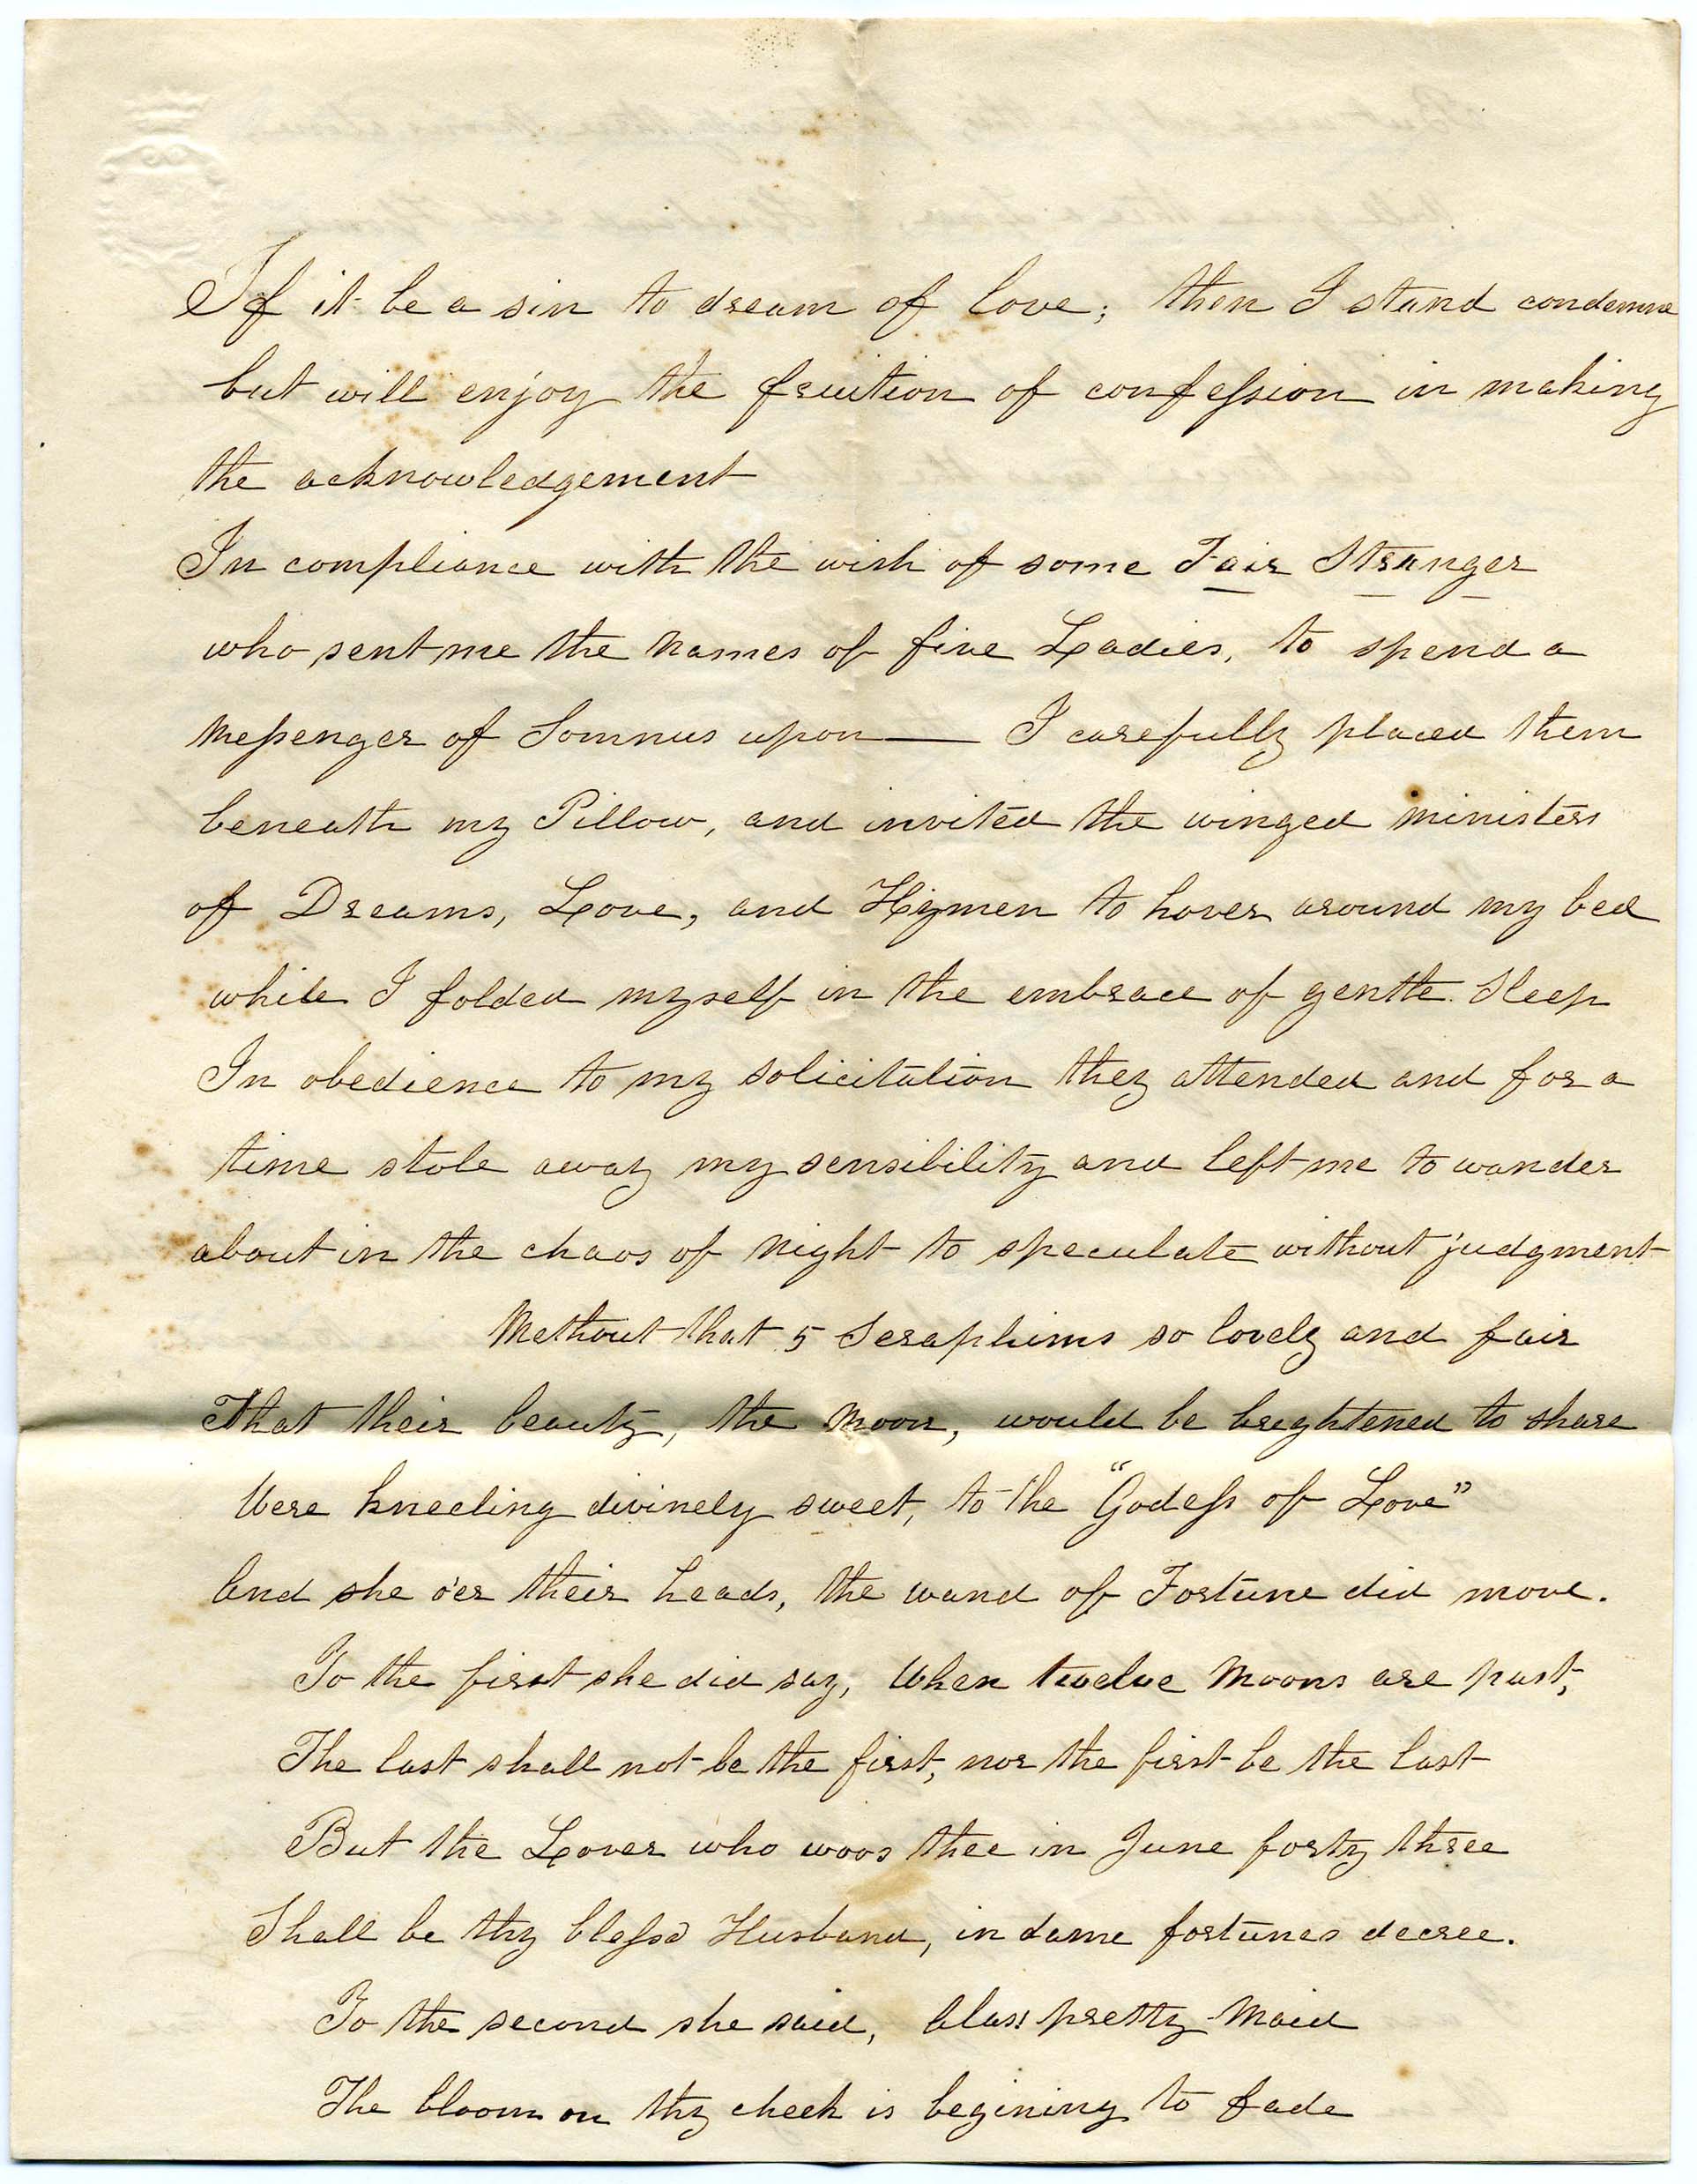 If it be a sin to dream of love; then I stand condemne
but will enjoy the fruition of confeſsion in making
the acknowledgement
In compliance with the wish of some Fair Stranger
who sent me the names of five Ladies, to spend a
Meſsenger of Somnus upon — I carefully placed them
beneath my Pillow, and invited the winged ministers
of Dreams, Love, and Hymen to hover around my bed
while I folded myself in the embrace of gentle Sleep
In obedience to my solicitation they attended and for a
time stole away my sensibility and left me to wander
about in the chaos of Night to speculate without judgment
Methout that 5 Seraphims so lovely and fair
That their beauty, the Moon, would be brightened to share
Were kneeling divinely sweet, to the "Godeſs of Love"
And she o'er their heads, the wand of Fortune did move.
To the first she did say, When twelve Moons are past,
The last shall not be the first, nor the first be the last
But the Lover who woos thee in June forty three
Shall be thy bleſsd Husband, in dame fortunes decree.
To the second she said, Alass pretty Maid
The bloom on thy cheek is begining to fade